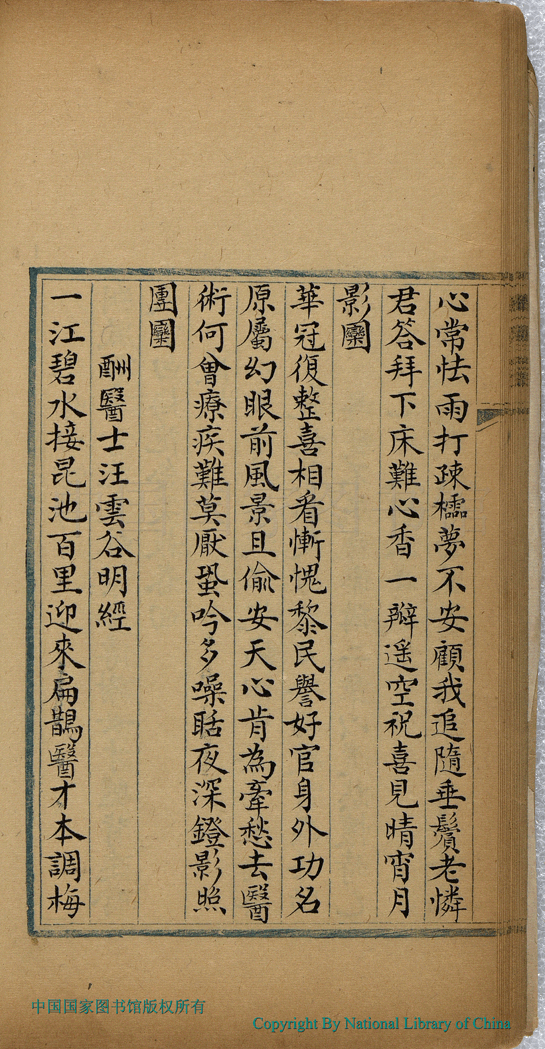 心常怯雨打疎櫺夢不安顧我追隨垂鬢老憐
君答拜下床難心香一瓣遥空祝喜見晴宵月
影圞
華冠復整喜相看慚愧黎民譽好官身外功名
原屬幻眼前風景且偷安天心肯為牽愁去醫
術何曾療疾難莫厭蛩吟多噪聒夜深鐙影照
團圞
酬醫士汪雲谷明經
一江碧水接昆池百里迎來扁鵲醫才本調梅
中国国家图书馆版权所有
Copyright By National Library of China